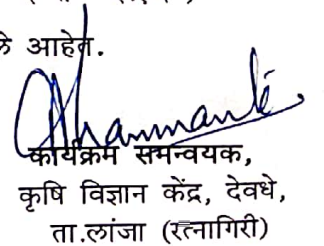 आहेत.
कार्यक्रम समन्वयक,
कृषि विज्ञान केंद्र, देवधे,
ता.लांजा (रत्नागिरी)